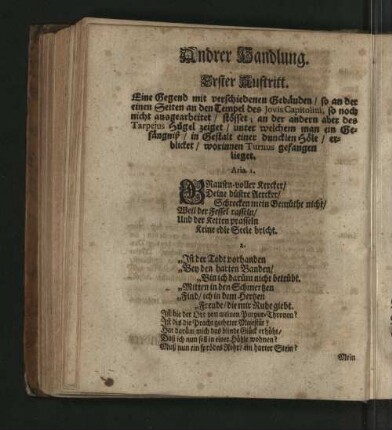 Andrer Handlung.
Erster Auftritt.
Eine Gegend mit verschiedenen Gebäuden / so an der
einen Seiten an den Tempel des Jovis Capitolini, so noch
nicht ausgearbeitet / stösset, an der andern aber des
Tarpejus Hügel zeiget / unter welchem man ein Ge-
fängniß / in Gestalt einer duncklen Höle / er-
blicket / worinnen Turnus gefangen
lieget.
Aria. 1.
GRausen-voller Kercker /
Deine düstre Aercker /
Schrecken mein Gemüthe nicht /
Weil der Fessel rasseln /
Und der Ketten prasseln
Keine edle Seele bricht.
2.
„Ist der Todt vorhanden
„Bey den harten Banden /
„Bin ich darüm nicht betrübt.
„Mitten in den Schmertzen
„Find / ich in dem Hertzen
„Freude / die mir Ruhe giebt.
Ist dis der Ort von meinen Purpur-Thronen?
Ist dis die Pracht geehrter Majestät?
Hat darüm mich das blinde Glück erhöht /
Daß ich nun soll in einer Höhle wohnen?
Muß nun ein sprödes Rohr / ein harter Stein?
Mein